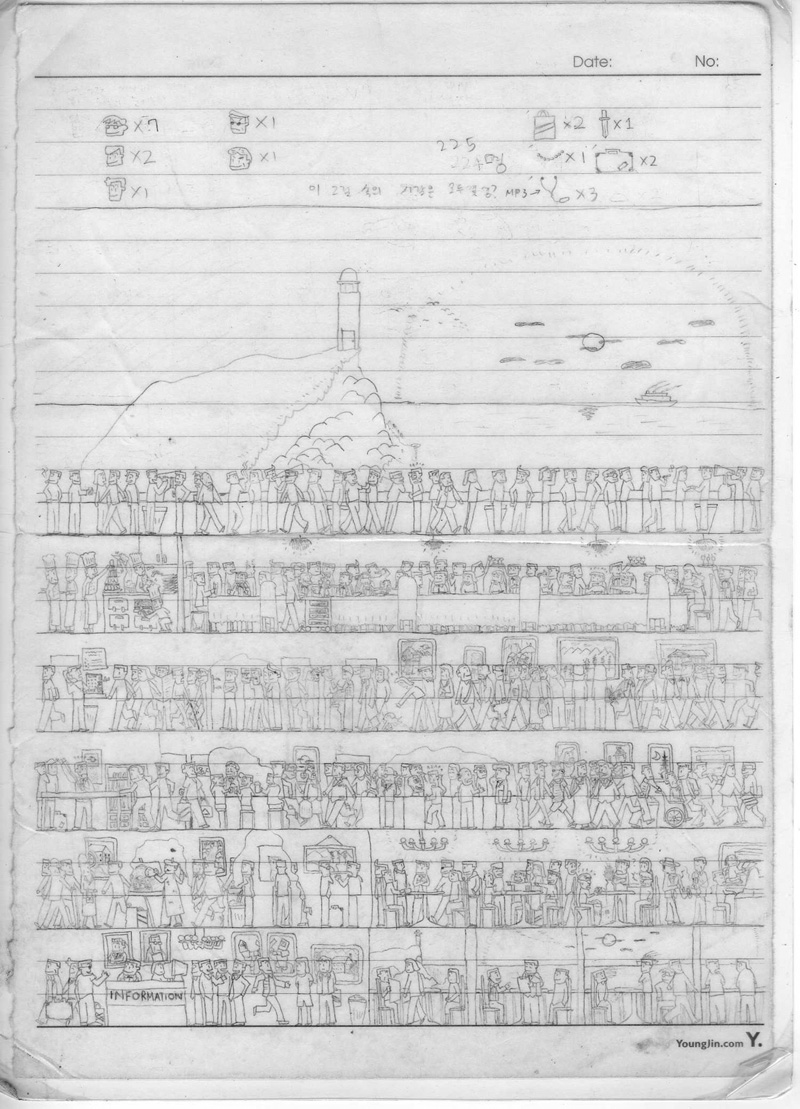 Date: No:
x7 x1 x2 x1
x2 x1 225
224명 x1 x2
x1 이 그림 속의 사람은 모두 몇 명? MP3→ x3
INFORMATION
YoungJin.com Y.